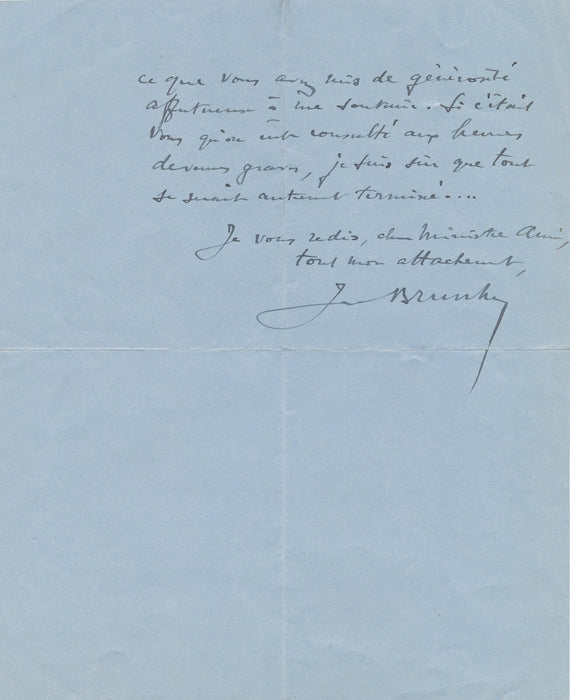 ce que vous avez mis de générosité
affectueuse à me soutenir. Si c'était
vous qu'on eût consulté aux heures
devenues graves, je suis sûr que tout
se serait autrement terminé....
Je vous redis, cher Ministre Ami,
tout mon attachement,